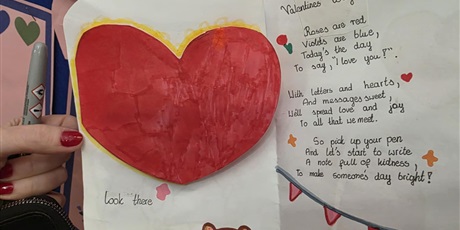 Valentines
Roses are red
Violets are blue,
Today's the day
To say, "I love you!".
With letters and hearts,
And messages sweet,
We'll spread love and joy
To all that we meet.
So pick up your pen
And let's start to write
A note full of kindness,
To make someone's day bright!
Look there